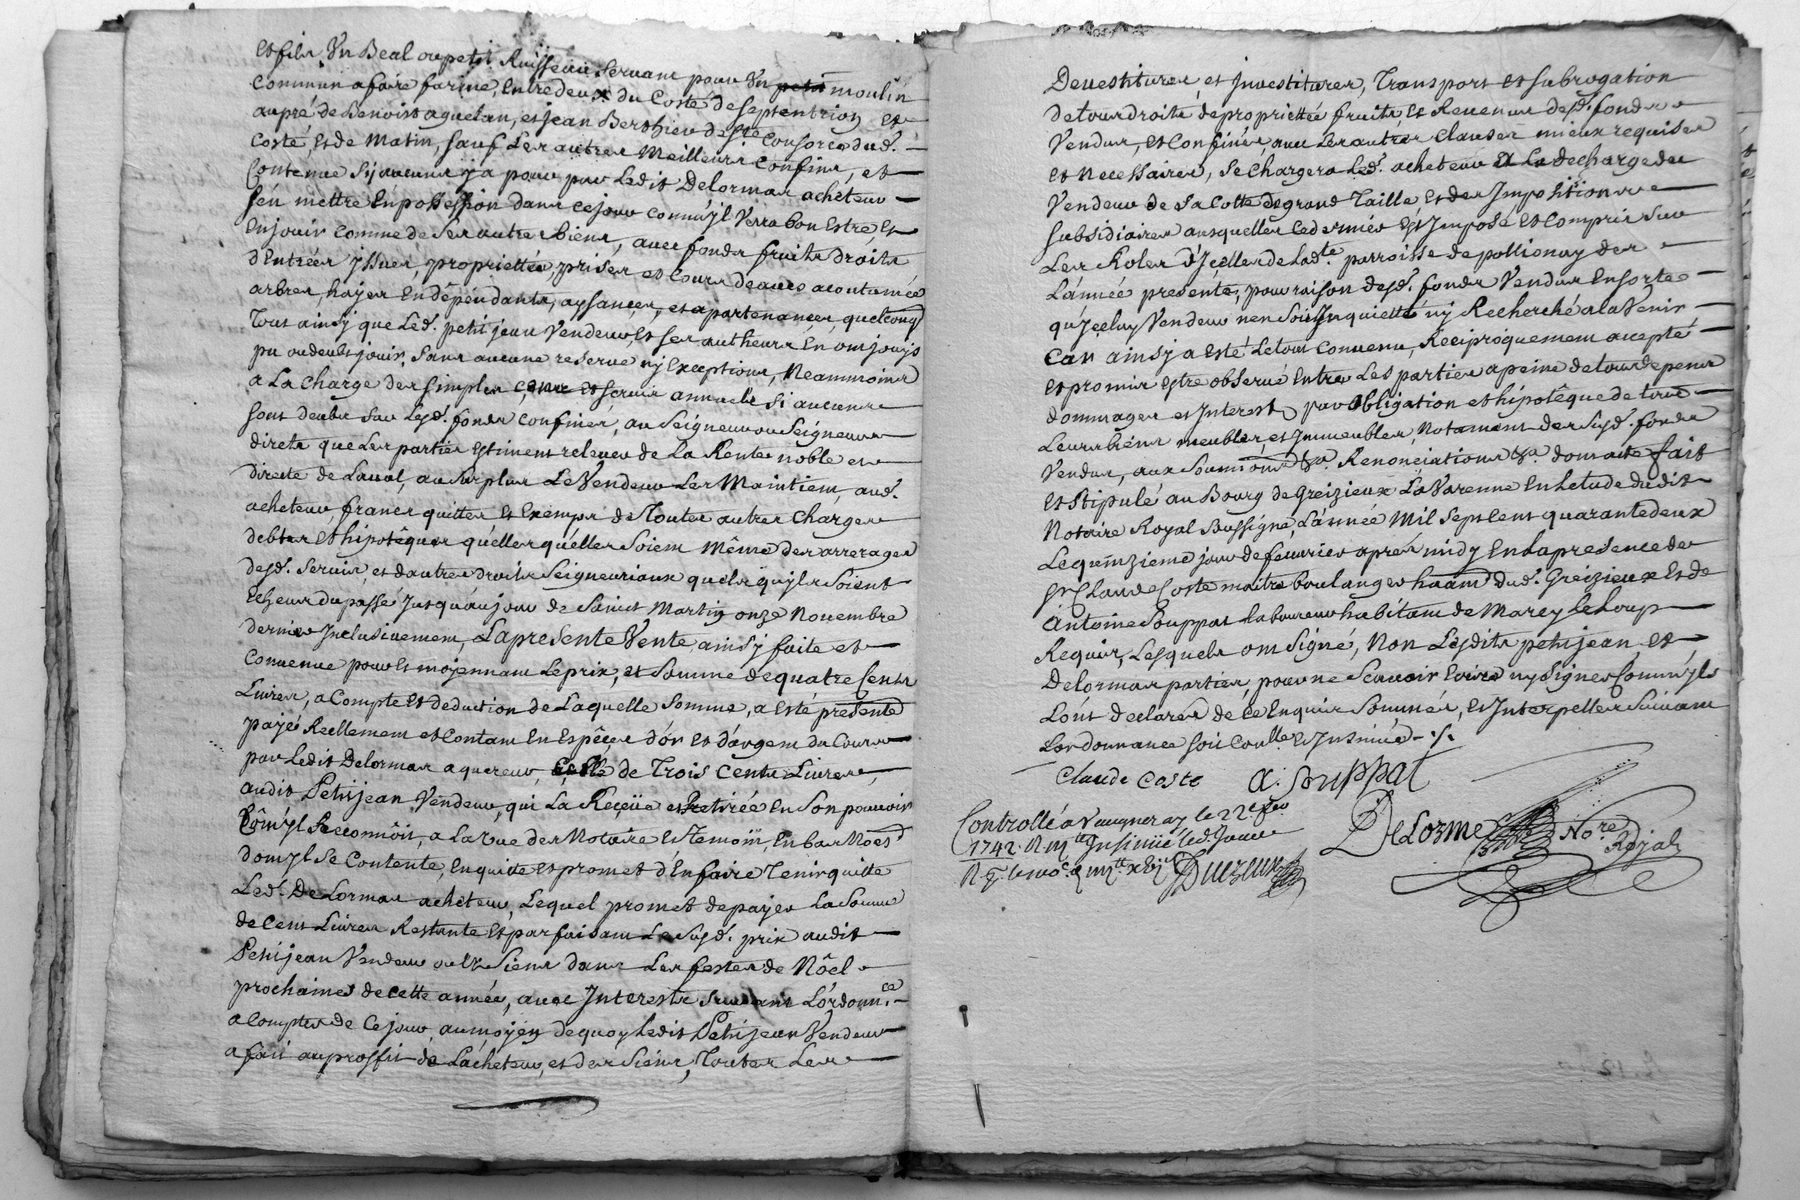 et fils, Un Beal ou petit Ruisseau servant pour Un petit moulin
commun a faire farine, Entredeux du Costé de septentrion et
au pré de Benoist aguetan, et jean Berthieu de ste Consorce dud.
Costé, et de Matin, sauf Les autres Meilleurs Confins, et
Contenue sy aucune y a pour par Ledit Delormas achéteur
s'en méttre En possession dans ce jour comm'yl Verra bon Estre Et
En jouir comme de ses autres biens, avec fonds fruits droits
d'Entrées yssues, propriettés, prises et Cours deaues acoutumée
arbres, hayes En dépendants, aysances, et apartenances quelconq
Tout ainsy que Led. petit jean Vendeur Et ses autheurs En ont jouys
pu ou deubt jouir, Sans aucune reserve ny Exceptions, Neammoins
a La charge des simples cens et servis annuels si aucuns
sont deubs sur Lesd. fonds confinés, au Seigneur ou Seigneurs
directs que Les parties Estiment relever de La Rente noble et
directe de Laval, au surplus Le Vendeur Les Maintient, aud.
acheteur, francs quittes et Exempts de Toutes autres charges
debtes Et hipotêques quélles quélles Soient Même des arrerages
desd. Servis et dautres droits Seigneuriaux quels qu'yls Soient
Echeus du passé Jusqu'au jour de Saint Martin onze Novembre
dernier Inclusivement, La presente Vente ainsy faite et
Convenue pour et moyennant Le prix, et Somme de quatre Cents
Livres, a Compte et deduction de Laquelle Somme, a esté présentemt
payé Reellement et Contant En Espêces d'or et d'argent du Cours
par Ledit Delormas aquereur, Celle de Trois Cents Livres,
audit Petitjean Vendeur, qui La Reçeüe et Retirée En Son pouvoir
Com'yl Reconnôit, a La Vue des Notaire et Temoins, En bas Noés
dont yl se Contente, En quitte Et promet d'En faire Tenir quitte
Led. De Lormas acheteur, Lequel promet de payer La Somme
de Cent Livres Restante Et parfaisant Le Susd. prix audit
Petitjean Vendeur ou Es Siens dans Les festes de Nôel
prochaines de cette année, avec Interests suivant L'ordonn.ce
a Compter de Ce jour, au moyen de quoy Ledit Petitjean Vendeur
a fait au proffit de L'acheteur, et des Siens, Toutes Les
Devestitures, et Investitures, Transport et Subrogation
de tous droits de propriettée fruits Et Revenus desd. fonds
Vendus, Et Confinés, avec Les autres clauses mieux requises
Et Necessaires, Se Chargera Led. acheteur a La decharge du
Vendeur de sa Cotte de grand Taille Et des Impositions
subsidiaires ausquelles Ce dernier Est Imposé Et Compris Sur
Les Roles d'Jcelles de Ladte parroisse de pollionay de
Lánnée presente, pour raison desd. fonds Vendus En sorte
qu'Jceluy Vendeur n'en Soit Inquietté ny Recherché a l'avenir
Car ainsy a Esté Le tout Convenu, Reciproquement acepté
Et promis Estre observé Entre Les parties a peine de tous depens
dommages et Interests, par obligation et hipotêque de tous
Leurs biens meubles, et Immeubles, Notament des Susd. fonds
Vendus, aux Soumons &a. Renonciations &a. dont acte fait
Et Stipulé au Bourg de Greizieux La Varenne En Letude dudit
Notaire Royal Soussigné, L'année Mil Sept Cent quarante deux
Le quinzieme jour de fevrier aprés midy En La presence de
Sr Claude Coste maitre boulanger haant dud. Greizieux Et de
Antoine Souppat Laboureur habitant de Marcy Le Loup
Requis, Lesquels ont Signé, Non Lesdits petitjean et
Delormas parties, pour ne Scavoir Ecrire ny Signer Com'yls
L'ont declarés de ce Enquis Sommés, et Interpellés Suivant
Lordonnance soit Coll.e Et Insinué ./.
Claude Coste A. Souppat
Controllé a Vaugneray le 22e fev
1742. R Insinué led jour
Duezeux
DeLorme No.re
Royal